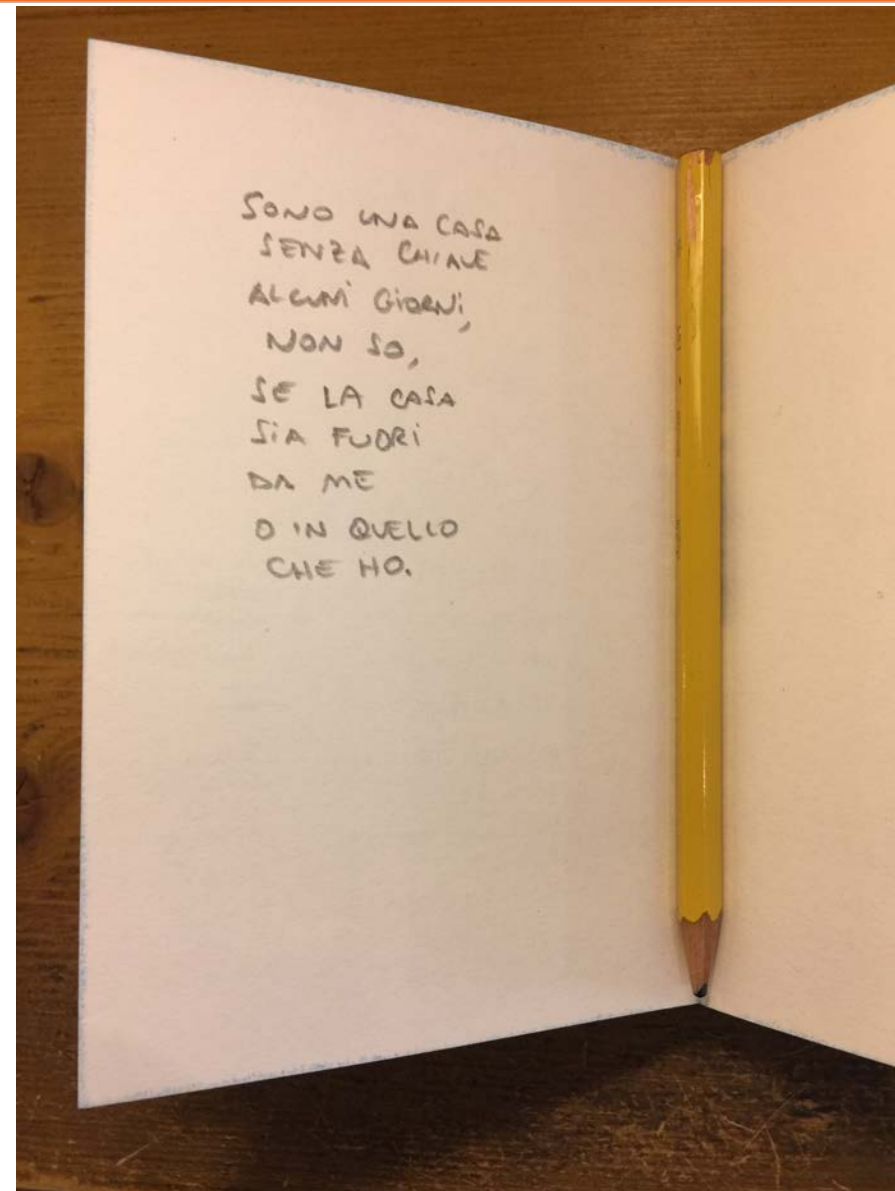 SONO UNA CASA
SENZA CHIAVE
ALCUNI GIORNI,
NON SO,
SE LA CASA
SIA FUORI
DA ME
O IN QUELLO
CHE HO.